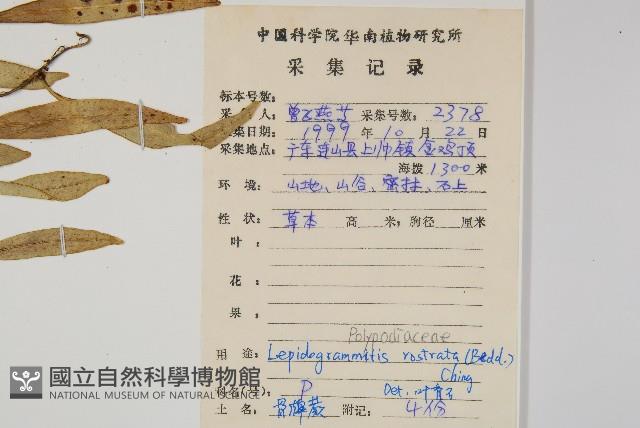 中国科学院华南植物研究所
采集记录
标本号数:
人: 采集号数: 2378
采集日期: 1999 年 10 月 22 日
采集地点: 广东连山县上帅镇金鸡顶
海拨 1300 米
环 境: 山地、山谷、密林、石上
性 状: 草本 高 米; 胸径 厘米
叶:
花
果:
Polypodiaceae
用 途: Lepidogrammitis rostrata (Bedd.)
Ching
科名(号): P Det.
土 名: 骨牌蕨 附记: 4份
國立自然科學博物館
NATIONAL MUSEUM OF NATURAL SCIENCE